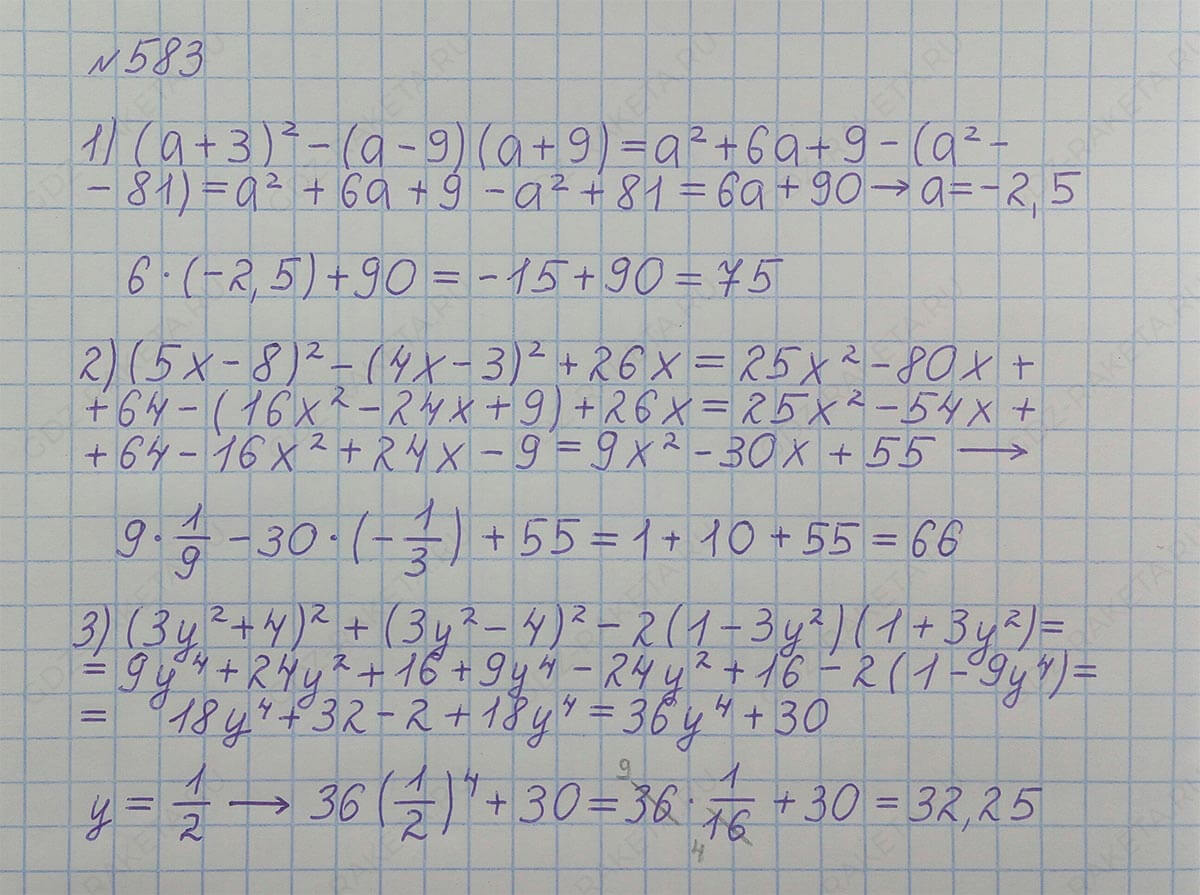 №583
1) (a+3)² - (a-9)(a+9) = a² + 6a + 9 - (a² -
- 81) = a² + 6a + 9 - a² + 81 = 6a + 90 → a = -2,5
6 · (-2,5) + 90 = -15 + 90 = 75
2) (5x - 8)² - (4x - 3)² + 26x = 25x² - 80x +
+ 64 - (16x² - 24x + 9) + 26x = 25x² - 54x +
+ 64 - 16x² + 24x - 9 = 9x² - 30x + 55 →
9 · 1/9 - 30 · (-1/3) + 55 = 1 + 10 + 55 = 66
3) (3y² + 4)² + (3y² - 4)² - 2(1 - 3y²)(1 + 3y²) =
= 9y⁴ + 24y² + 16 + 9y⁴ - 24y² + 16 - 2(1 - 9y⁴) =
= 18y⁴ + 32 - 2 + 18y⁴ = 36y⁴ + 30
y = 1/2 → 36(1/2)⁴ + 30 = 9 36 · 1/16 4 + 30 = 32,25
GDZ-RAKETA.RU